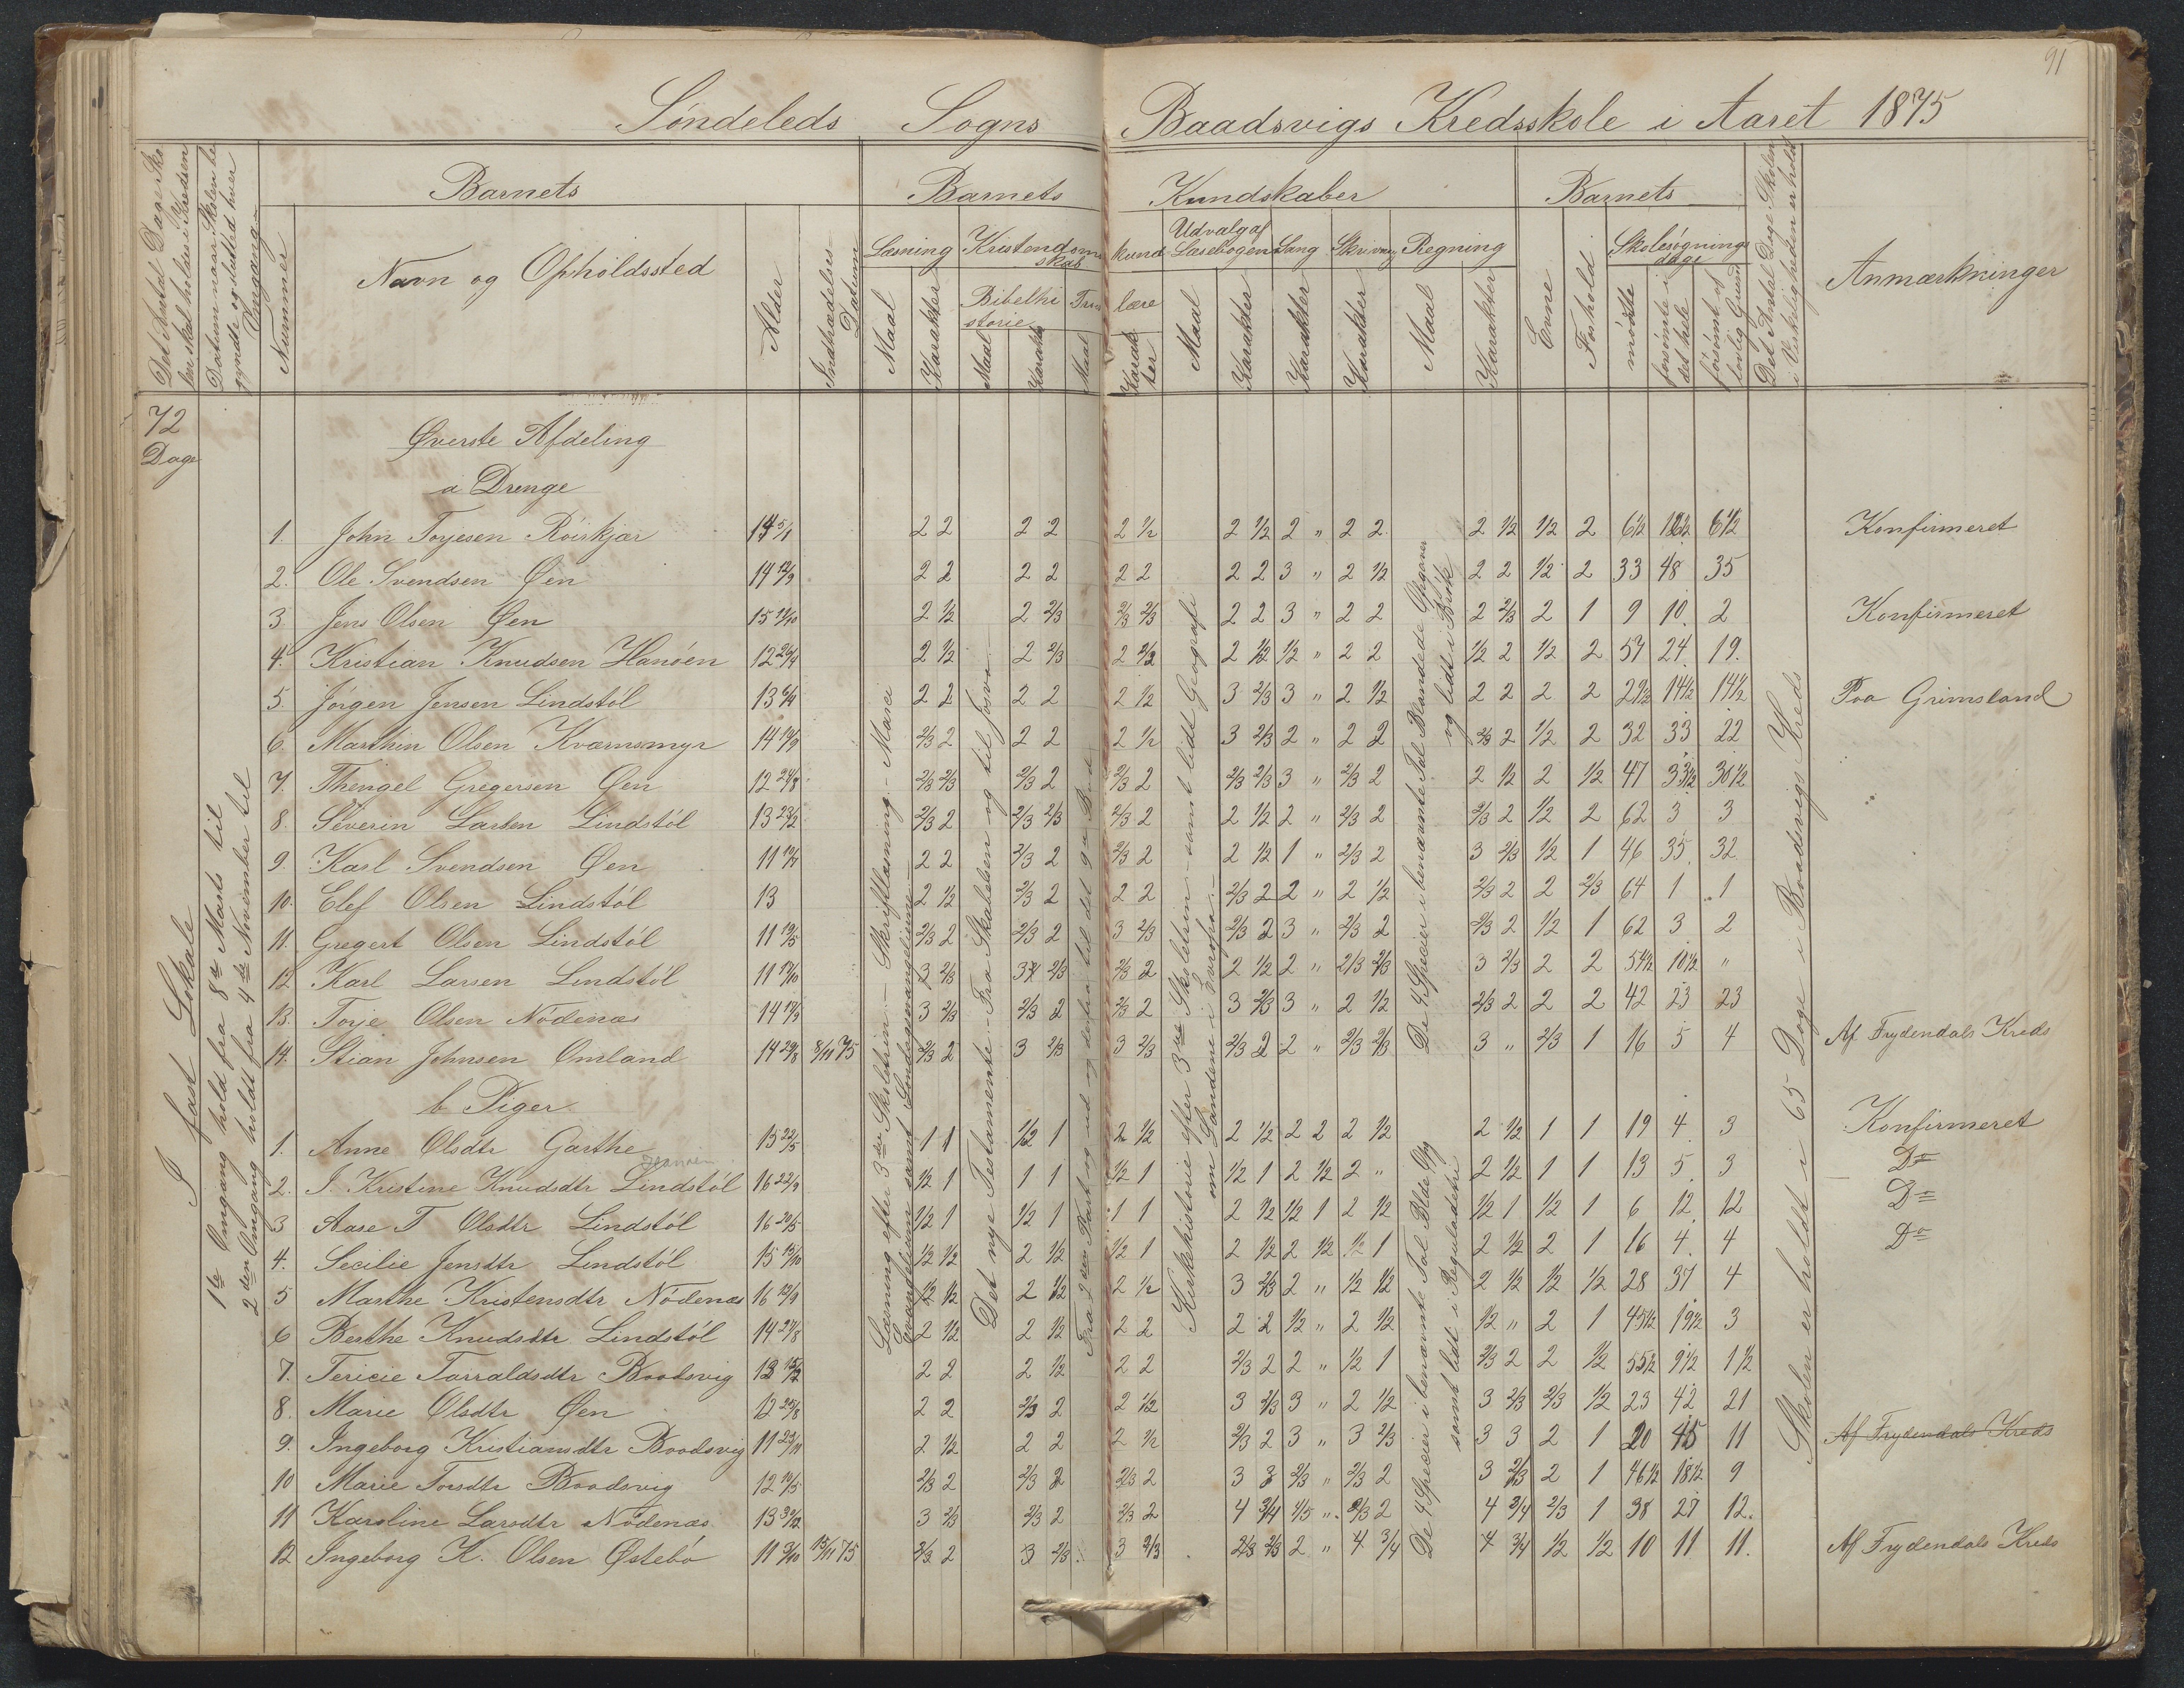 91
Søndeleds Sogns Baadsvigs Kredsskole i Aaret 1875
Det Antal Dage Sko
len skal holdes i Kredsen
Datum naar Skolen be
gynde og slutted hver
Omgang
Nummer
Barnets
Navn og Opholdssted
Alder
Indtrædelses
Datum
Barnets Kundskaber
Læsning
Maal
Karakter
Kristendomskundskab
Bibelhistorie
Maal
Karakter
Troeslære
Maal
Karakter
Udvalg af
Læsebogen
Maal
Karakter
Sang
Karakter
Skrivning
Karakter
Regning
Maal
Karakter
Barnets
Evne
Forhold
Skolesøgnings
dage
mödte
forsömte i
det hele
försömt af
lovlig Grund
Det Antal Dage Skolen
i Virkeligheden er holdt
Anmærkninger
72
Dage
I fast Lokale
1ste Omgang hold fra 8de Marts til
2den Omgang holdt fra 4de November til
Øverste Afdeling
a Drenge
1. John Torjesen Röirkjær 14 5/1 2 2 2 2 2 1/2 2 1/2 2 " 2 2 2 1/2 1/2 2 6 1/2 6 1/2 Konfirmeret
2. Ole Svendsen Øen 14 12/9 2 2 2 2 2 2 2 2 3 " 2 1/2 2 2 1/2 2 33 48 35
3. Jens Olsen Øen 15 2 1/2 2 2/3 2/3 2/3 2 2 3 " 2 2 2 2/3 2 1 9 10 2 Konfirmeret
4. Kristian Knudsen Hanöen 12 26/4 2 1/2 2 2/3 2 2/3 2 1/2 1/2 " 2 2 1/2 2 1/2 2 57 24 19.
5. Jörgen Jensen Lindstöl 13 2 2 2 2 2 1/2 3 2/3 3 " 2 1/2 2 2 2 2 29 1/2 14 1/2 14 1/2 Paa Grimsland
6. Marthin Olsen Kværnsmyr 14 19/9 2/3 2 2 2 2 1/2 3 2/3 2 " 2 2 2/3 2 1/2 2 32 33 22
7. Thengel Gregersen Øen 12 24/8 2/3 2/3 2/3 2 2/3 2 2/3 2/3 3 " 2/3 2 2 1/2 2 1/2 47 33 1/2 30 1/2
8. Severin Larsen Lindstöl 13 23/2 2/3 2 2/3 2/3 2/3 2 2 1/2 2 " 2/3 2 2/3 2 1/2 2 62 3 3
9. Karl Svendsen Øen 11 2 2 2/3 2 2/3 2 2 1/2 1 " 2/3 2 3 2/3 1/2 1 46 35 32
10. Elef Olsen Lindstöl 13 2 1/2 2/3 2 2 2 2/3 2 2 " 2 1/2 2/3 2 2 2/3 64 1 1
11. Gregert Olsen Lindstöl 11 19/5 2/3 2 2/3 2 3 2/3 2/3 2 3 " 2/3 2 2/3 2 1/2 1 62 3 2
12 Karl Larsen Lindstöl 11 3 2/3 3 2/3 2/3 2 2 1/2 2 " 2/3 2/3 3 2/3 2 2 54 1/2 10 1/2 "
13. Torje Olsen Nödenæs 14 3 2/3 2/3 2 2/3 2 3 2/3 3 " 2 1/2 2/3 2 2 2 42 23 23
14. Stian Johnsen Omland 14 29/8 8/11 75 2/3 2 3 2/3 3 2/3 2/3 2 2 " 2/3 2/3 3 " 2/3 1 16 5 4 Af Frydendals Kreds
b Piger
1. Anne Olsdtr Garthe 15 22/5 1 1 1/2 1 2 1/2 2 1/2 2 2 2 1/2 2 1/2 1 1 19 4 3 Konfirmeret
2. I. Kristine Knudsdtr Lindstöl 16 22/9 1/2 1 1 1 1/2 1 1/2 1 2 1/2 2 " 2 1/2 1 1 13 5 3 Do
3 Aase T Olsdtr Lindstöl 16 20/5 1/2 1 1/2 1 1 1 2 1/2 1/2 1 2 1/2 1/2 1 1/2 1 6 12 12 Do
4. Secilie Jensdtr Lindstöl 15 15/10 1/2 1/2 2 1/2 1/2 1 2 1/2 2 1/2 1/2 1 2 1/2 2 1 16 4 4 Do
5 Marthe Kristensdtr Nödenæs 16 1/2 1/2 2 1/2 2 1/2 3 2/3 2 " 1/2 1/2 2 1/2 1/2 1/2 28 37 4
6 Berthe Knudsdtr Lindstöl 14 27/8 2 1/2 2 1/2 2 2 2 2 1/2 " 2 1/2 1/2 " 2 1 45 1/2 19 1/2 3
7. Tericie Tarraldsdtr Baadsvig 13 2 2 2 1/2 2 2 2/3 2 2 " 1/2 1 2/3 2 2 1/2 55 1/2 9 1/2 1 1/2
8. Marie Olsdtr Øen 12 25/8 2 2 2/3 2 2 1/2 3 2/3 3 " 2 1/2 3 2/3 2/3 1/2 23 42 21
9. Ingeborg Kristiansdtr Baadsvig 11 23/11 2 1/2 2 2 2 1/2 2/3 2 3 " 3 2/3 3 3 2 1 20 45 11 Af Frydendals Kreds
10 Marie Torsdtr Baadsvig 12 2/3 2 2/3 2 2/3 2 3 3 2/3 " 2/3 2 3 2/3 2 1 46 1/2 18 1/2 9
11 Karoline Larsdtr Nödenæs 13 30/12 3 2/3 2/3 2 2/3 2 4 3/4 4/5 " 2/3 2 4 3/4 2/3 1 38 27 12.
12 Ingeborg K. Olsen Østebö 11 15/11 75 2/3 2 3 2/3 3 2/3 2/3 2/3 2 " 4 3/4 4 3/4 1/2 1/2 10 11 11. Af Frydendals Kreds
Læsning efter 3die Skoletrin – Skriftlæsning – Marci
Evangelium samt
Det nye Testamente – Fra Skabelsen og til
Fra 2den Part og ud og derfra til det 9de Bud
Kirkehistorie efter 3die Skoletrin – samt lidt Geografi
om Landene i Evropa –
De 4 Specier i benævnte Tal Blandede Opgaver
og lidt i Brök
De 4 Specier i benævnte Tal Blde Opg
samt lidt i Reguladetri
Skolen er holdt i 65 Dage i Baadsvigs Kreds